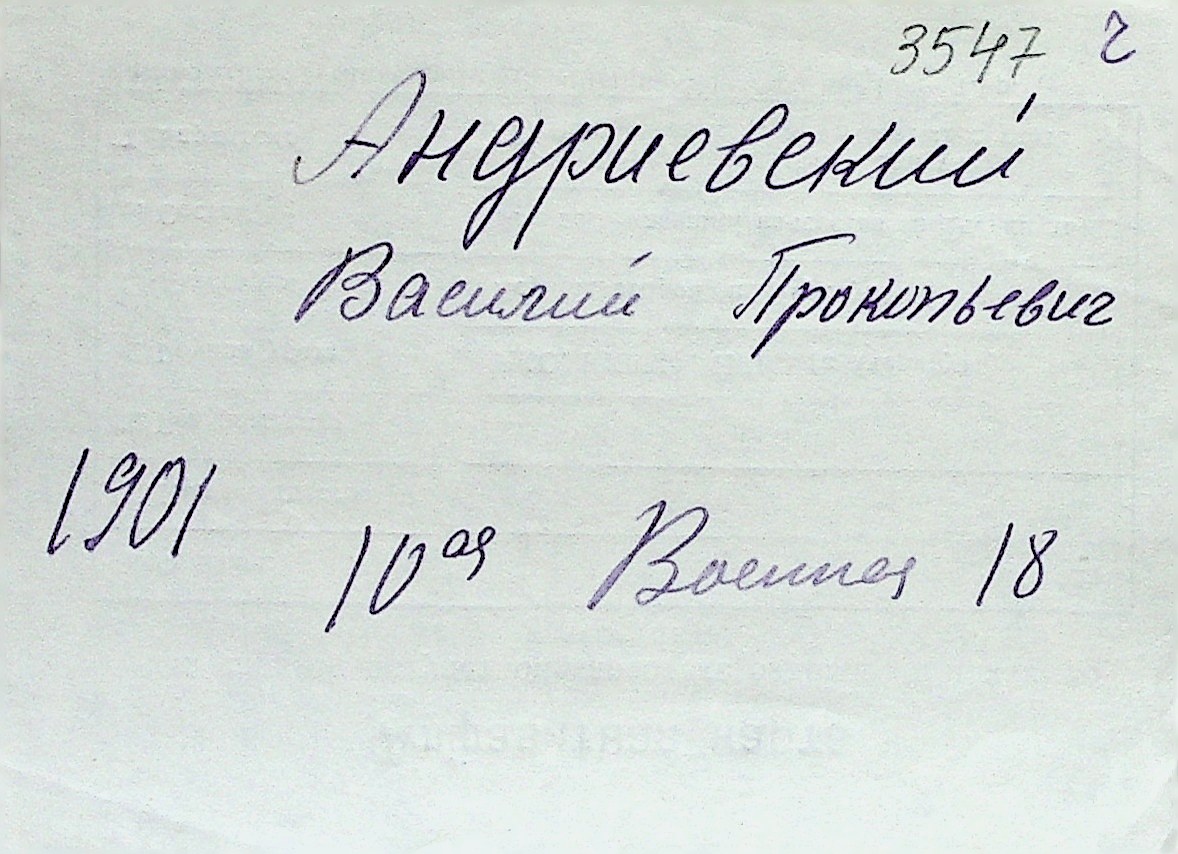 3547 г
Андриевский
Василий Прокопьевич
1901
10ая Военная 18